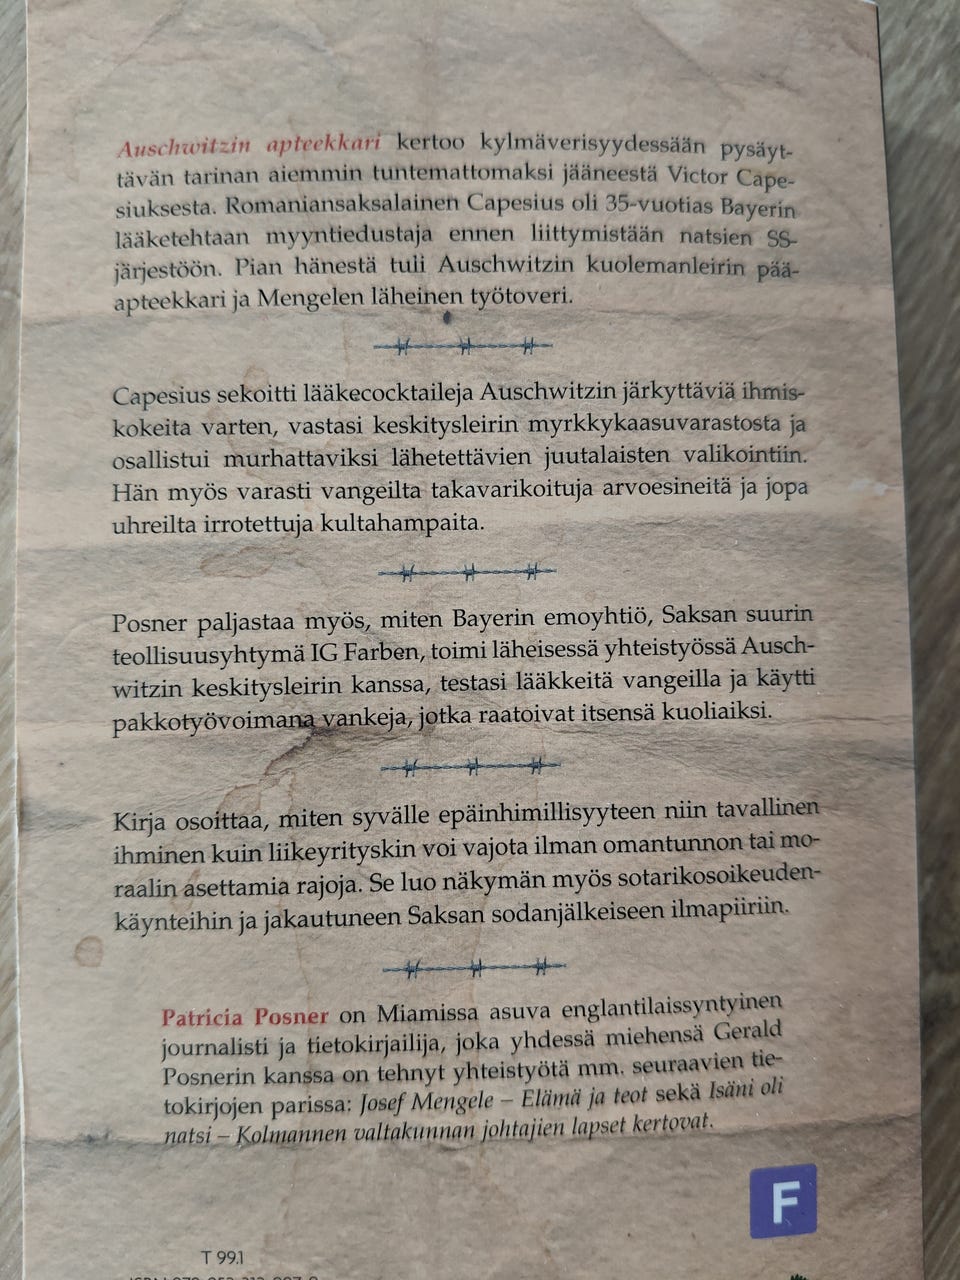 Auschwitzin apteekkari kertoo kylmäverisyydessään pysäyt-
tävän tarinan aiemmin tuntemattomaksi jääneestä Victor Cape-
siuksesta. Romaniansaksalainen Capesius oli 35-vuotias Bayerin
lääketehtaan myyntiedustaja ennen liittymistään natsien SS-
järjestöön. Pian hänestä tuli Auschwitzin kuolemanleirin pää-
apteekkari ja Mengelen läheinen työtoveri.
Capesius sekoitti lääkecocktaileja Auschwitzin järkyttäviä ihmis-
kokeita varten, vastasi keskitysleirin myrkkykaasuvarastosta ja
osallistui murhattaviksi lähetettävien juutalaisten valikointiin.
Hän myös varasti vangeilta takavarikoituja arvoesineitä ja jopa
uhreilta irrotettuja kultahampaita.
Posner paljastaa myös, miten Bayerin emoyhtiö, Saksan suurin
teollisuusyhtymä IG Farben, toimi läheisessä yhteistyössä Ausch-
witzin keskitysleirin kanssa, testasi lääkkeitä vangeilla ja käytti
pakkotyövoimana vankeja, jotka raatoivat itsensä kuoliaiksi.
Kirja osoittaa, miten syvälle epäinhimillisyyteen niin tavallinen
ihminen kuin liikeyrityskin voi vajota ilman omantunnon tai mo-
raalin asettamia rajoja. Se luo näkymän myös sotarikosoikeuden-
käynteihin ja jakautuneen Saksan sodanjälkeiseen ilmapiiriin.
Patricia Posner on Miamissa asuva englantilaissyntyinen
journalisti ja tietokirjailija, joka yhdessä miehensä Gerald
Posnerin kanssa on tehnyt yhteistyötä mm. seuraavien tie-
tokirjojen parissa: Josef Mengele – Elämä ja teot sekä Isäni oli
natsi – Kolmannen valtakunnan johtajien lapset kertovat.
F
T 99.1